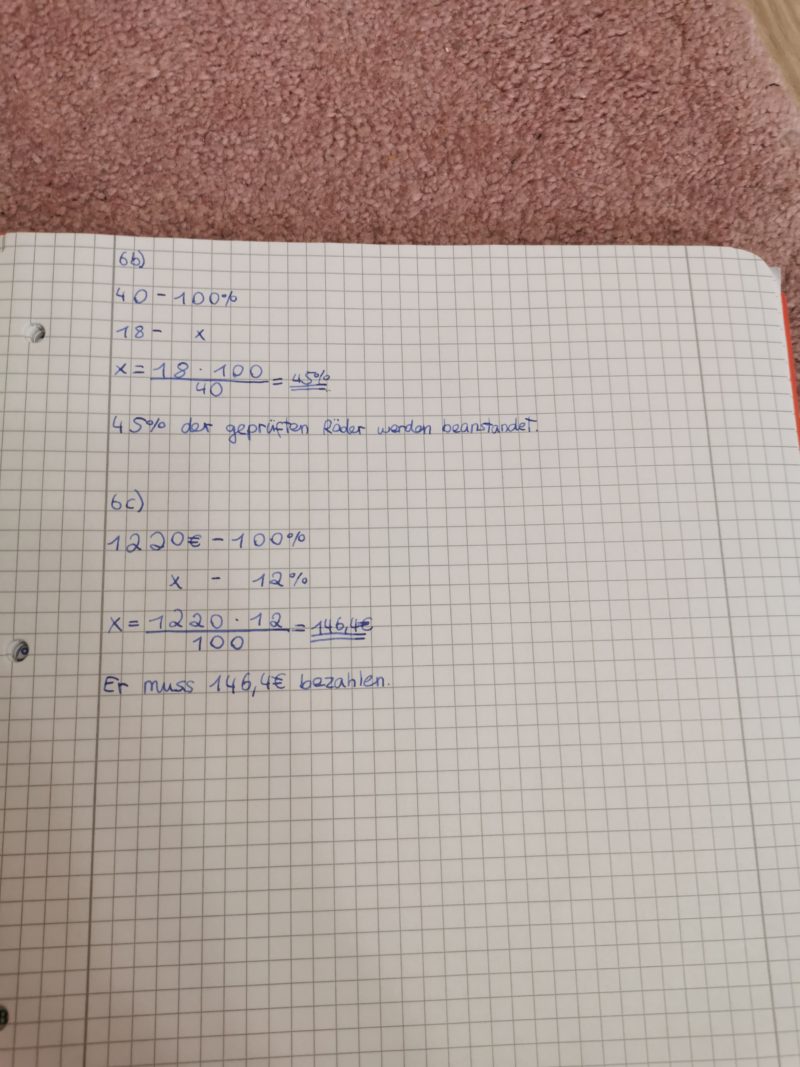 6b)
40 - 100%
18 - x
x = 18 · 100 / 40 = 45%
45% der geprüften Räder werden beanstandet.
6c)
1220€ - 100%
x - 12%
x = 1220 · 12 / 100 = 146,4€
Er muss 146,4€ bezahlen.